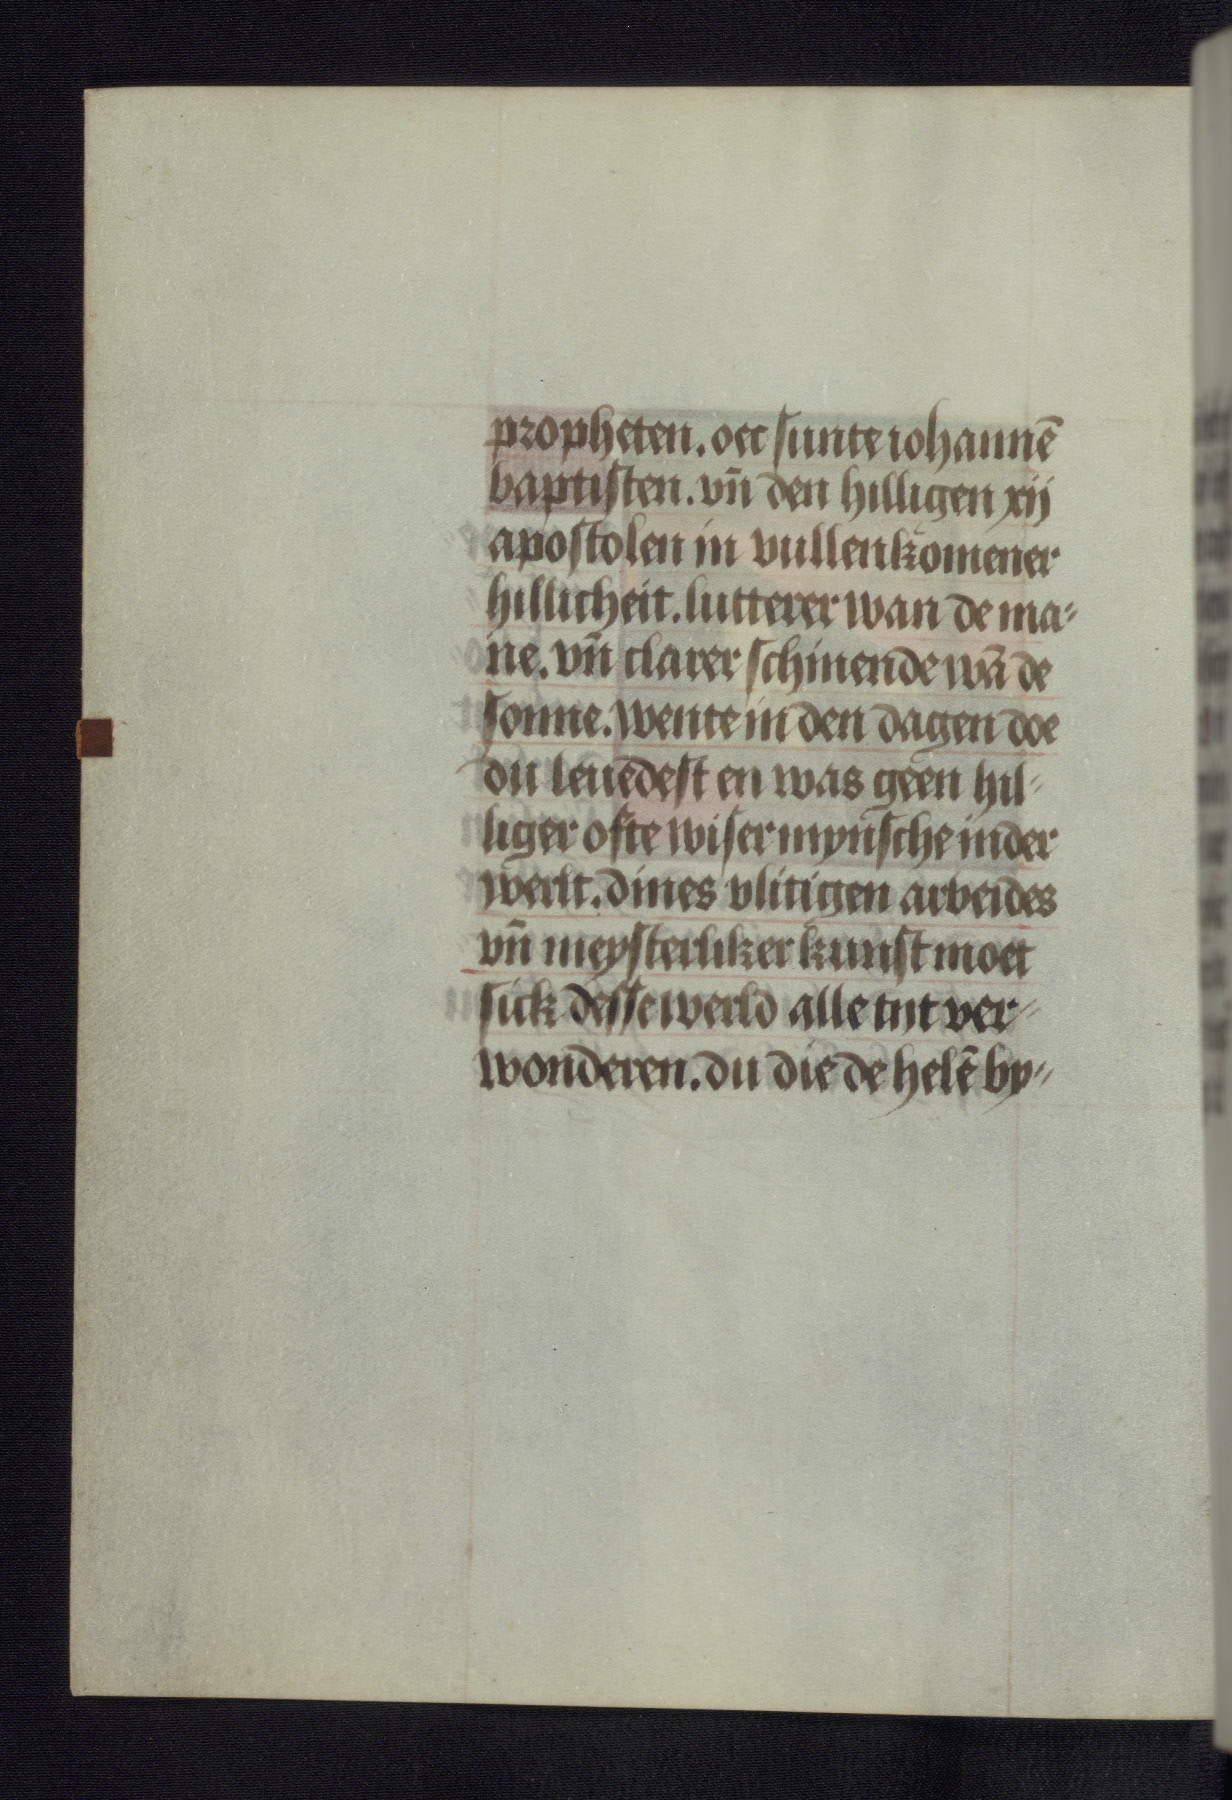 propheten. oec sunte iohannē
baptisten. vn̄ den hilligen xij
apostolen in vullenkomener
hillicheit. lutterer wan de ma⸗
ne. vn̄ clarer schinende wā de
sonne. Wente in den dagen doe
du leuedest en was geen hil⸗
liger ofte wiser mynsche in der
werlt. dines vlitigen arbeides
vn̄ meysterliker kunst moet
sick desse werld alle tyt ver⸗
wonderen. du die de helē by⸗